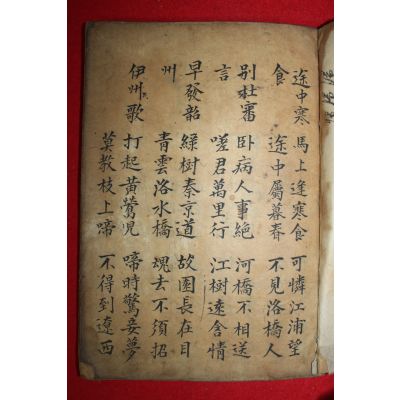 途中寒 馬上逢寒食 可憐江浦望
食 途中屬暮春 不見洛橋人
别杜審 卧病人事絶 河橋不相送
言 嗟君萬里行 江樹遠含情
早發韶 綠樹秦京道 故園長在目
州 青雲洛水橋 魂去不須招
伊州歌 打起黃鶯児 啼時驚妾夢
莫教枝上啼 不得到遼西